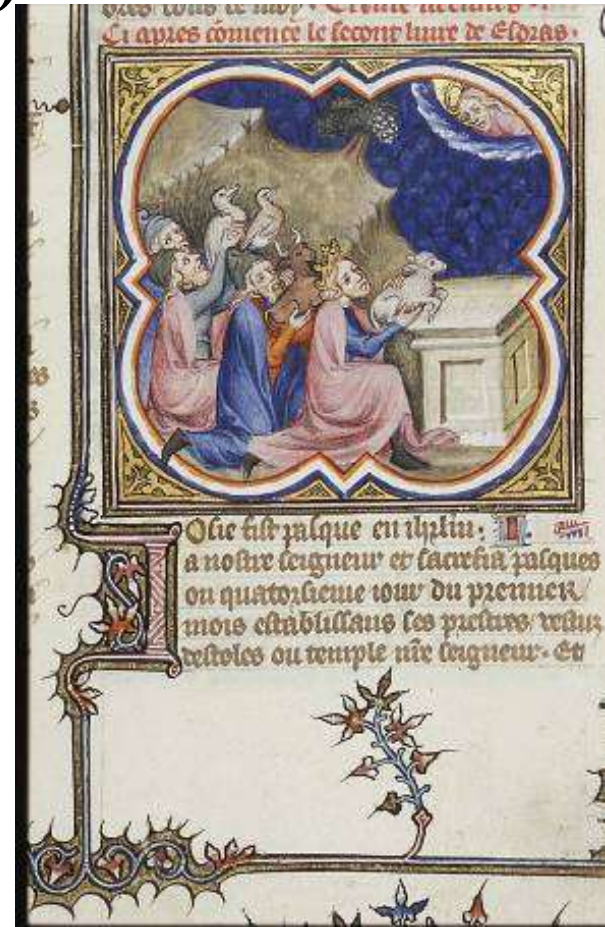 Ci apres cōmence le second liure de Esdras.
Josie fist pasque en ihrlm̄:
a nostre seigneur et sacrefia pasques
ou quatorsieme iour du premier
mois establissans ses prestres vestuz
destoles ou temple nr̄e seigneur. Et